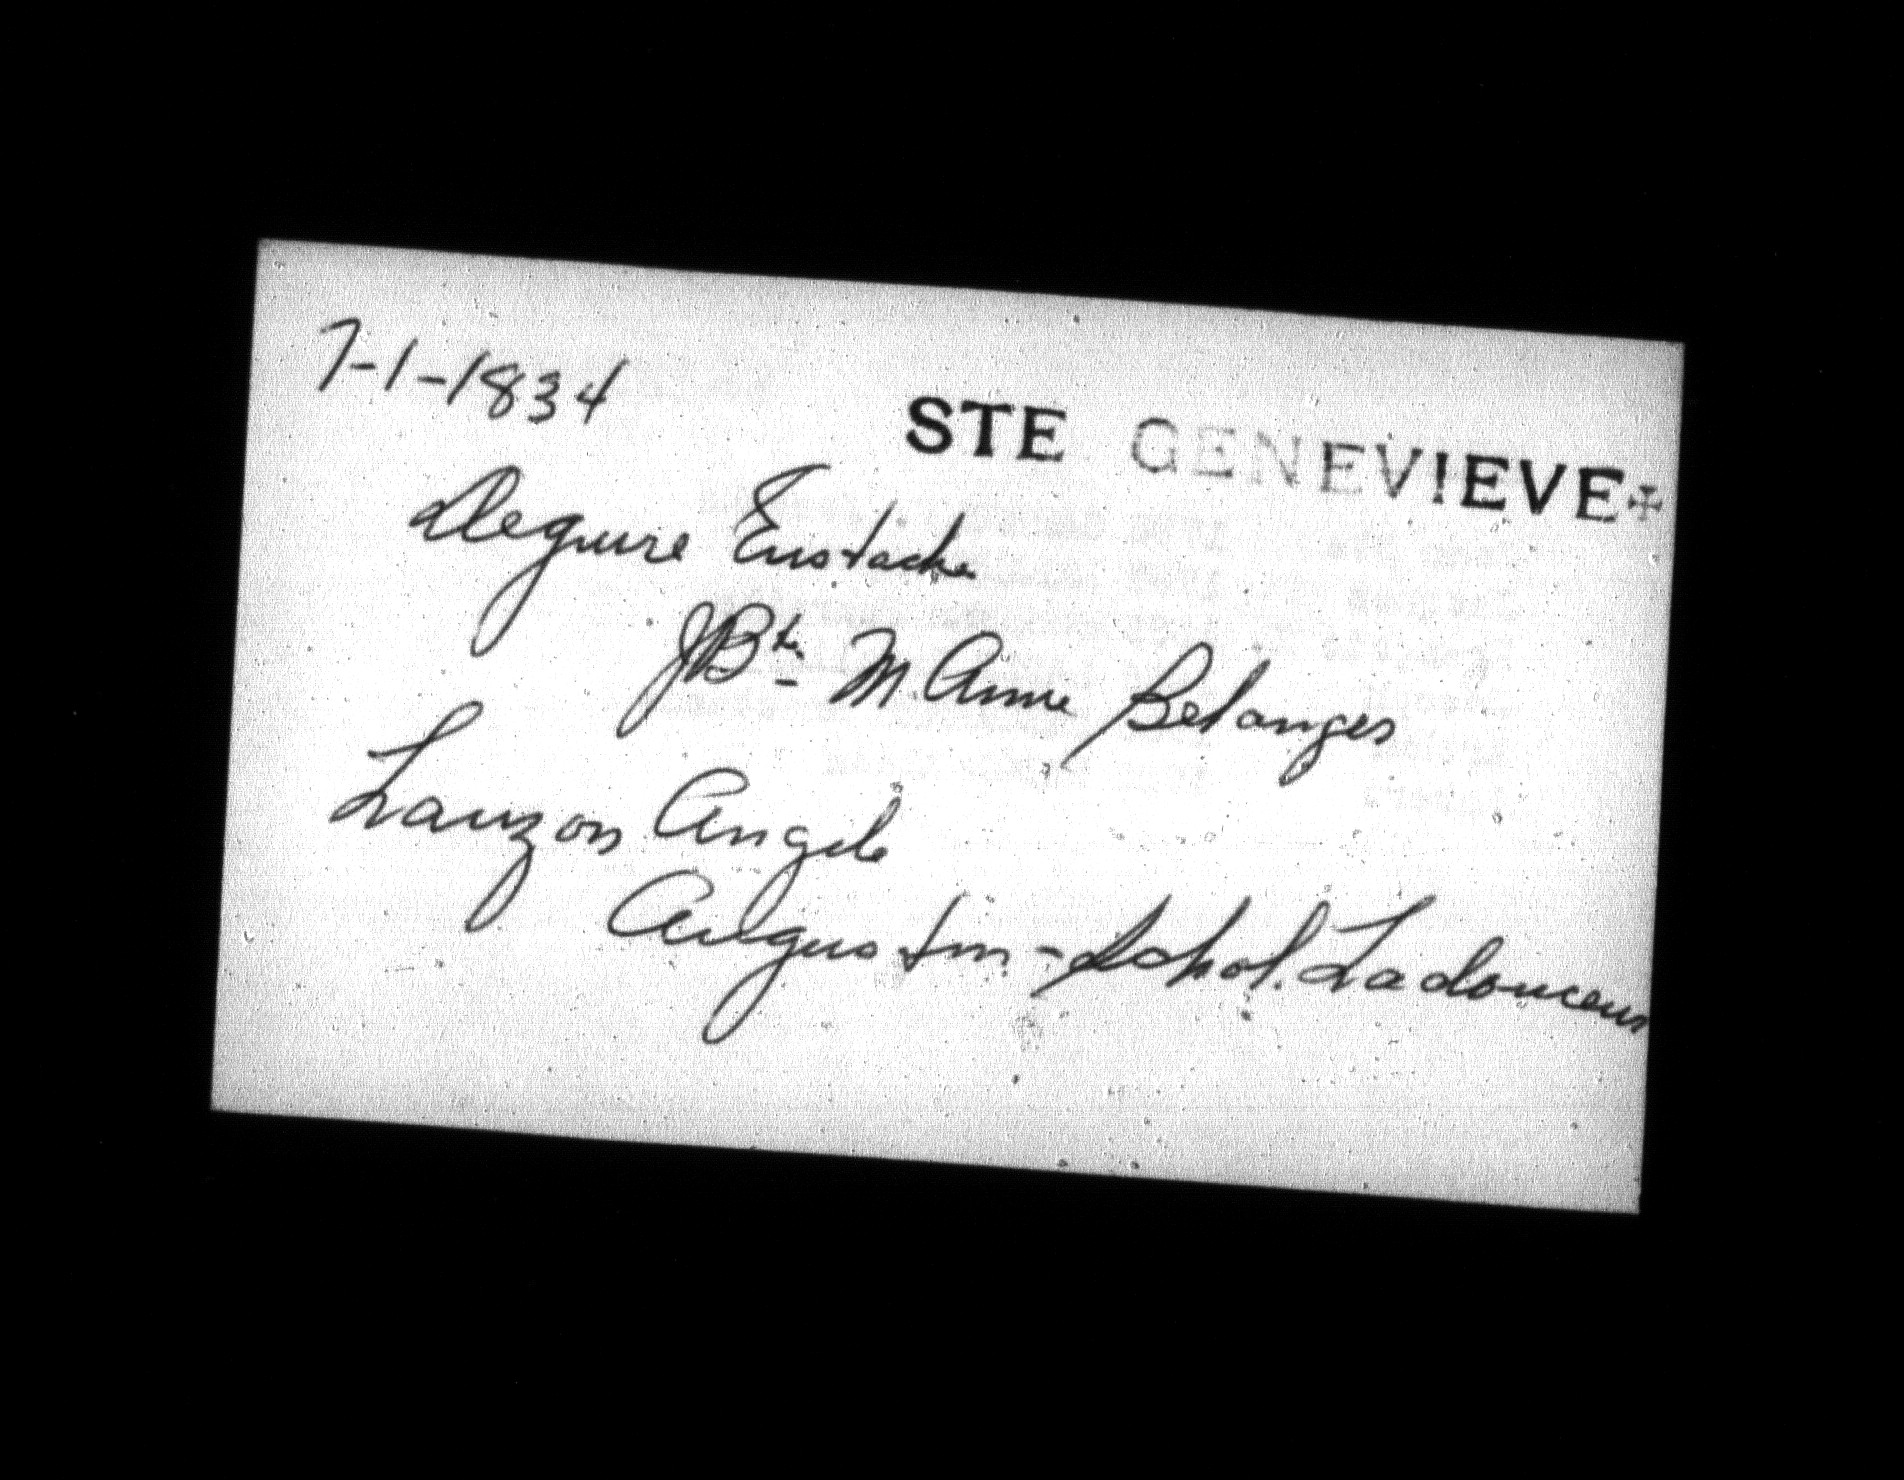 7-1-1834
STE GENEVIEVE
Deguire Eustache
JBte - M Anne Belanger
Lauzon Angele
Augustin - Schol. Ladouceur